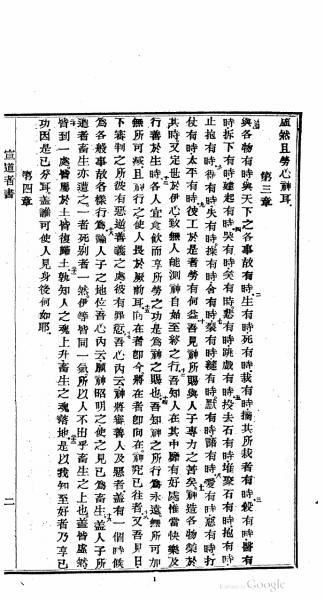 虛然且勞心神耳
第三章
與各物有時與天下之各事故有時生有時死有時栽有時摘其所栽者有時殺有時醫有
時拆下有時建起有時哭有時笑有時悲有時跳戲有時投去石有時堆聚石有時抱有時
止抱有時得有時失有時採有時舍有時裂有時縫有時默有時語有時愛有時惡有時打
仗有時太平有時彼工於是者勞有何益吾見神所賜與人子專力之苦矣神造各物榮於
其時又定世於伊心致無人能測神自始至終之行吾知人在其中歸有好處惟當快樂及
行善於生時各人宜食飲而享所勞之功是為神之賜也吾知神之所行為永遠無所可加
無所可減且神行之使人長於厥前耳向在者卽今將在者卽向在神究已往者又吾見日
下審判之所彼有惡逆善義之處彼有罪愆吾心內云神將審善人及惡者蓋有一個時候
為各般事故各樣行為論人子之地位吾心內云願神昭明之使之見已為畜生蓋人子所
遇者畜生亦遭之一者死別者一然伊等皆同一氣所以人不出乎畜生之上也蓋皆虛然
皆到一處皆屬於土皆復歸土孰知人之魂上升畜生之魂落地是以我知至好者乃享已
功因是已分耳蓋誰可使人見身後何如耶
第四章
宣道者書
二
1
Google